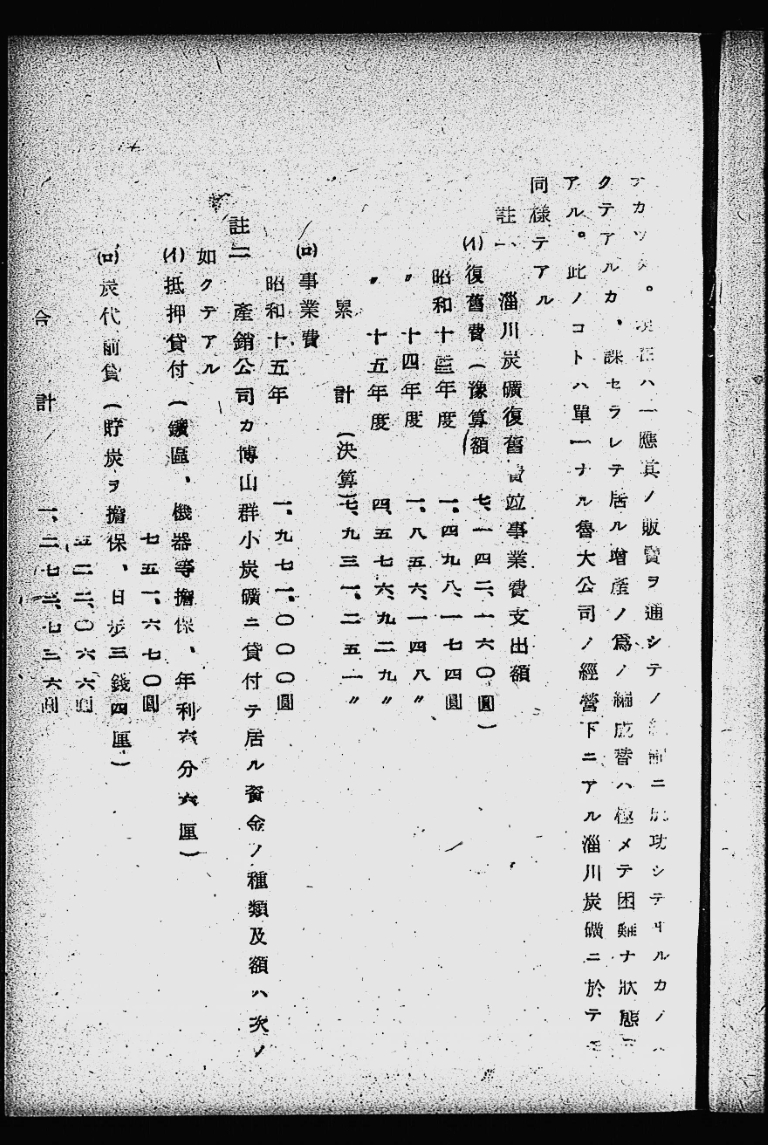 ハ一應其ノ販賣ヲ通シテノ ニ 功シテ ルカ
クテアルカ、課セラレテ居ル增產ノ爲ノ編成替ハ極メテ困難ナ狀態
アル。此ノコトハ單一ナル魯大公司ノ經營下ニアル淄川炭礦ニ於テ
同樣テアル
註一、淄川炭礦復舊費竝事業費支出額
(イ)復舊費(豫算額 七、一四二、一六〇圓)
昭和十三年度 一、四九八、一七四圓
〃 十四年度 一、八五六、一四八〃
〃 十五年度 四、五七六、九二九〃
累計(決算) 七、九三一、二五一〃
(ロ)事業費
昭和十五年 一、九七一、〇〇〇圓
註二 產銷公司カ博山群小炭礦ニ貸付テ居ル資金ノ種類及額ハ次ノ
如クテアル
(イ)抵押貸付(鑛區、機器等擔保、年利六分六厘)
七五一、六七〇圓
(ロ)炭代前貸(貯炭ヲ擔保、日步三錢四厘)
五二二、〇六六圓
合計 一、二七三、七三六圓